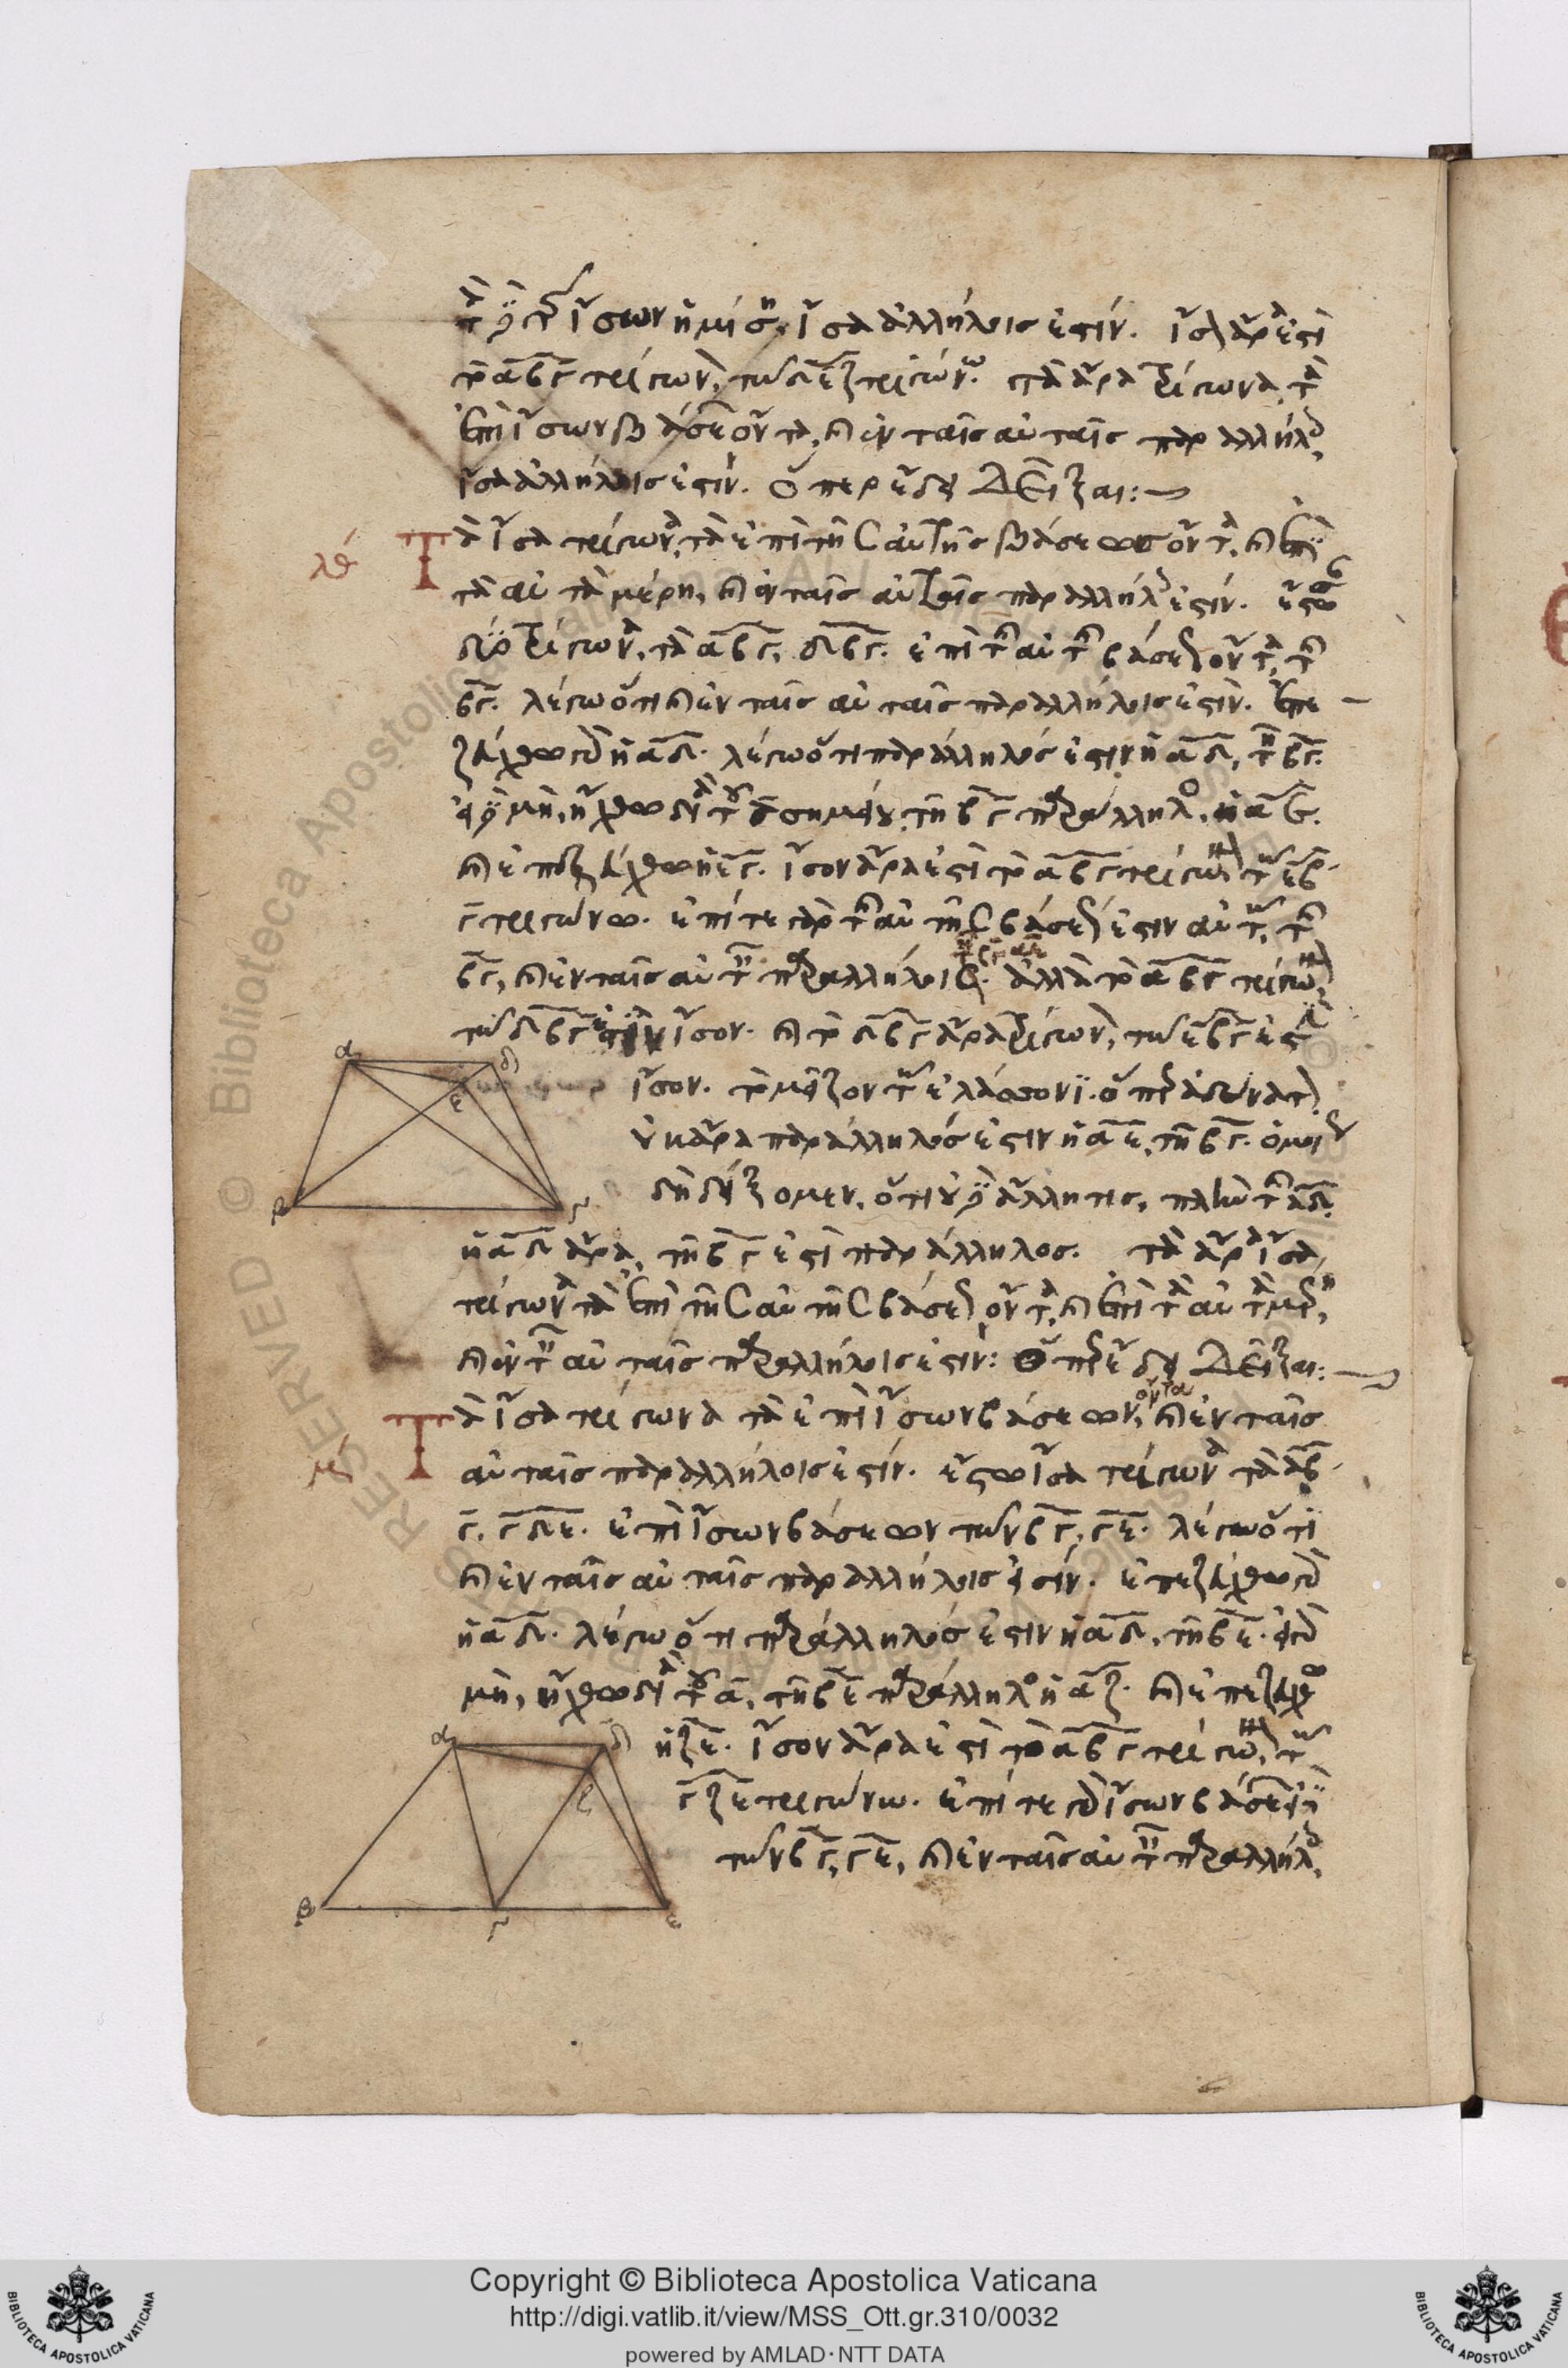 τὰ δὲ τῶν ἴσων ἡμίση, ἴσα ἀλλήλοις ἐστίν. ἴσον ἄρα ἐστὶ
τὸ αβγ τρίγωνον, τῶ δεζ τριγώνω. τὰ ἄρα τρίγωνα, τὰ
ἐπὶ ἴσων βάσεων ὄντα, καὶ ἐν ταῖς αὐταῖς παραλλήλοις,
ἴσα ἀλλήλοις ἐστίν. ὅπερ ἔδει δεῖξαι:
λθ Τὰ ἴσα τρίγωνα, τὰ ἐπὶ τῆς αὐτῆς βάσεως ὄντα, καὶ ἐπὶ
τὰ αὐτὰ μέρη, καὶ ἐν ταῖς αὐταῖς παραλλήλοις ἐστίν. ἔστω ἴσα
δύο τρίγωνα, τὰ αβγ, δβγ. ἐπὶ τῆς αὐτῆς βάσεως ὄντα, τῆς
βγ. λέγω ὅτι καὶ ἐν ταῖς αὐταῖς παραλλήλοις ἐστίν. ἐπε
ζεύχθω γὰρ ἡ αδ. λέγω ὅτι παράλληλός ἐστιν ἡ αδ, τῆ βγ.
εἰ γὰρ μὴ, ἤχθω διὰ τοῦ α σημείου, τῆ βγ παράλληλος, ἡ αε.
καὶ ἐπεζεύχθω ἡ εγ. ἴσον ἄρα ἐστὶ τὸ αβγ τρίγωνον, τῶ εβ
γ τριγώνω. ἐπί τε γὰρ τῆς αὐτῆς βάσεώς ἐστιν αὐτῶ, τῆς
βγ, καὶ ἐν ταῖς αὐταῖς παραλλήλοις. ἀλλὰ τὸ αβγ τρίγωνον,
τῶ δβγ ἐστὶν ἴσον. καὶ τὸ δβγ ἄρα τρίγωνον, τῶ εβγ ἐστὶν
ἴσον. τὸ μεῖζον τῶ ἐλάσσονι. ὅπερ ἀδύνατον.
οὐκ ἄρα παράλληλός ἐστιν ἡ αε, τῆ βγ. ὁμοίως
δὴ δείξομεν, ὅτι οὐδὲ ἄλλη τις, πλὴν τῆς αδ.
ἡ αδ ἄρα, τῆ βγ ἐστὶ παράλληλος. τὰ ἄρα ἴσα
τρίγωνα τὰ ἐπὶ τῆς αὐτῆς βάσεως ὄντα, καὶ ἐπὶ τὰ αὐτὰ μέρη,
καὶ ἐν ταῖς αὐταῖς παραλλήλοις ἐστίν: ὅπερ ἔδει δεῖξαι:
μ Τὰ ἴσα τρίγωνα τὰ ἐπὶ ἴσων βάσεων, ὄντα καὶ ἐν ταῖς
αὐταῖς παραλλήλοις ἐστίν. ἔστω ἴσα τρίγωνα τὰ αβ
γ, γδε. ἐπὶ ἴσων βάσεων τῶν βγ, γε. λέγω ὅτι
καὶ ἐν ταῖς αὐταῖς παραλλήλοις εἰσίν. ἐπεζεύχθω γὰρ
ἡ αδ. λέγω ὅτι παράλληλός ἐστιν ἡ αδ, τῆ βε. εἰ γὰρ
μὴ, ἤχθω διὰ τοῦ α, τῆ βε παράλληλος ἡ αζ. καὶ ἐπεζεύχθω
ἡ ζε. ἴσον ἄρα ἐστὶ τὸ αβγ τρίγωνον, τῶ
γζε τριγώνω. ἐπί τε γὰρ ἴσων βάσεών εἰσι
τῶν βγ, γε, καὶ ἐν ταῖς αὐταῖς παραλλήλοις,
α δ
ε
β γ
α δ
ζ
β γ ε
Copyright © Biblioteca Apostolica Vaticana
http://digi.vatlib.it/view/MSS_Ott.gr.310/0032
powered by AMLAD·NTT DATA
BIBLIOTECA APOSTOLICA VATICANA
BIBLIOTECA APOSTOLICA VATICANA